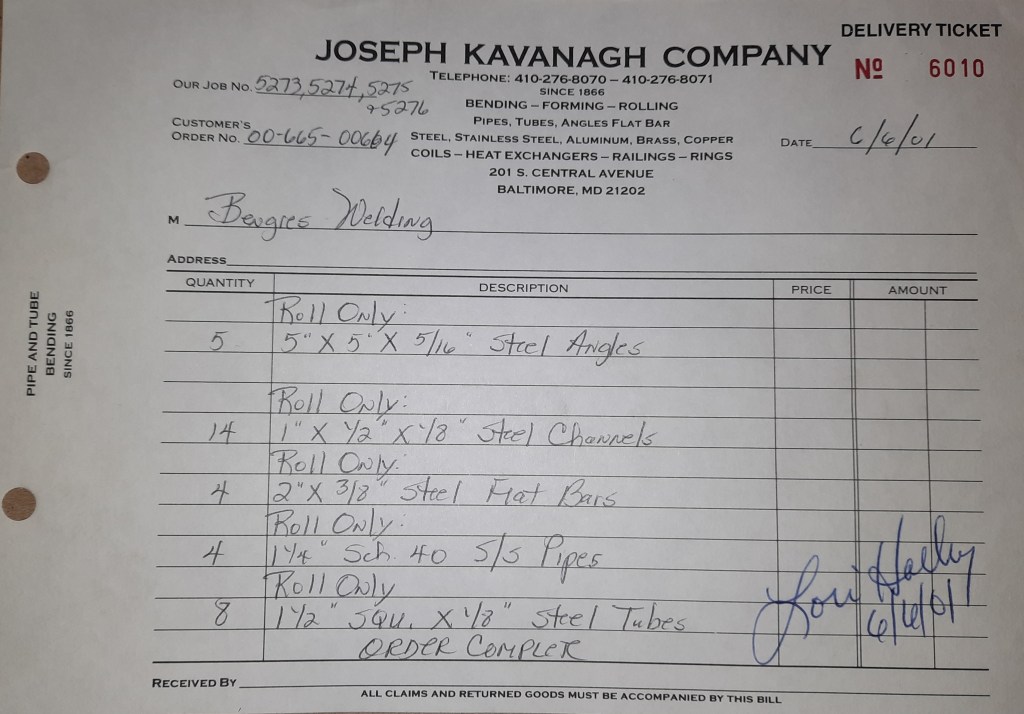 DELIVERY TICKET
JOSEPH KAVANAGH COMPANY
Nº 6010
TELEPHONE: 410-276-8070 – 410-276-8071
SINCE 1866
OUR JOB NO. 5273, 5274, 5275
+ 5276
BENDING – FORMING – ROLLING
PIPES, TUBES, ANGLES FLAT BAR
CUSTOMER'S
ORDER NO. 00-665-00664
STEEL, STAINLESS STEEL, ALUMINUM, BRASS, COPPER
DATE 6/6/01
COILS – HEAT EXCHANGERS – RAILINGS – RINGS
201 S. CENTRAL AVENUE
BALTIMORE, MD 21202
M Bengies Welding
ADDRESS
QUANTITY DESCRIPTION PRICE AMOUNT
Roll Only:
5 5" X 5" X 5/16" Steel Angles
Roll Only:
14 1" X 1/2" X 1/8" Steel Channels
Roll Only:
4 2" X 3/8" Steel Flat Bars
Roll Only:
4 1 1/4" Sch. 40 S/S Pipes
Roll Only
8 1 1/2" Squ. X 1/8" Steel Tubes
ORDER COMPLETE
Lori
6/6/01
RECEIVED BY
ALL CLAIMS AND RETURNED GOODS MUST BE ACCOMPANIED BY THIS BILL
PIPE AND TUBE
BENDING
SINCE 1866